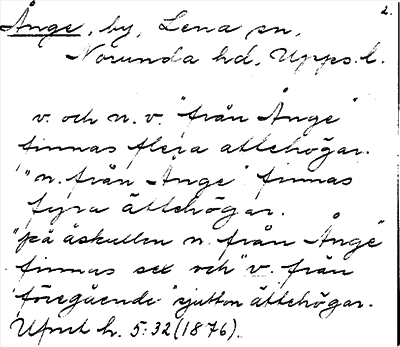 2.
Ånge, by, Lena sn,
Norunda hd, Upps. l.
v. och n. v. "från Ånge"
finnas flera ättehögar.
"n. från Ånge" finnas
fyra ättehögar.
"på åskullen n. från Ånge"
finnas sex och "v. från
föregående" sjutton ättehögar.
Upmt h. 5:32 (1876).